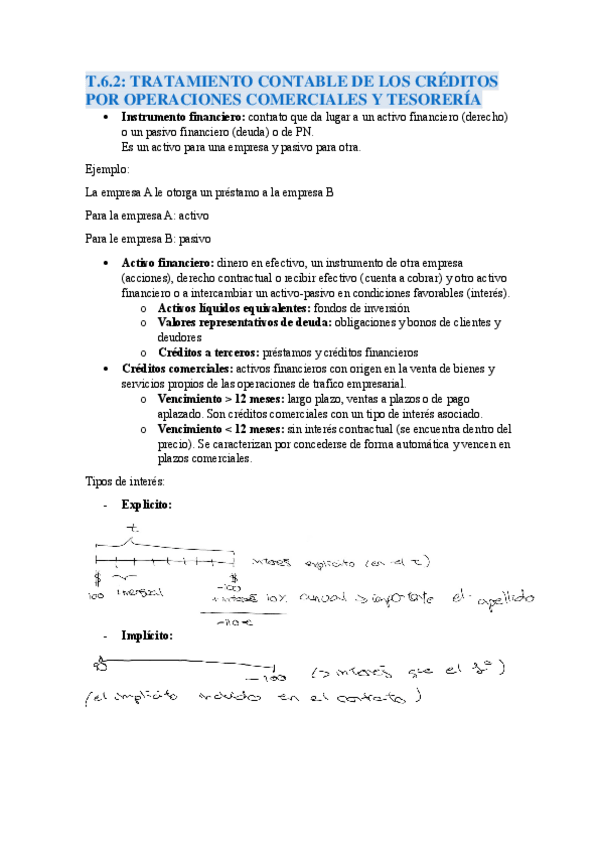 T.6.2: TRATAMIENTO CONTABLE DE LOS CRÉDITOS
POR OPERACIONES COMERCIALES Y TESORERÍA
• Instrumento financiero: contrato que da lugar a un activo financiero (derecho)
o un pasivo financiero (deuda) o de PN.
Es un activo para una empresa y pasivo para otra.
Ejemplo:
La empresa A le otorga un préstamo a la empresa B
Para la empresa A: activo
Para le empresa B: pasivo
• Activo financiero: dinero en efectivo, un instrumento de otra empresa
(acciones), derecho contractual o recibir efectivo (cuenta a cobrar) y otro activo
financiero o a intercambiar un activo-pasivo en condiciones favorables (interés).
o Activos líquidos equivalentes: fondos de inversión
o Valores representativos de deuda: obligaciones y bonos de clientes y
deudores
o Créditos a terceros: préstamos y créditos financieros
• Créditos comerciales: activos financieros con origen en la venta de bienes y
servicios propios de las operaciones de trafico empresarial.
o Vencimiento > 12 meses: largo plazo, ventas a plazos o de pago
aplazado. Son créditos comerciales con un tipo de interés asociado.
o Vencimiento < 12 meses: sin interés contractual (se encuentra dentro del
precio). Se caracterizan por concederse de forma automática y vencen en
plazos comerciales.
Tipos de interés:
- Explicito:
t
interés explícito (en el t)
$ $
100 mensual -100
+ interés 10% anual > importante el apellido
-110€
- Implícito:
-100 (> interés que el 1º)
(el implícito incluido en el contrato)